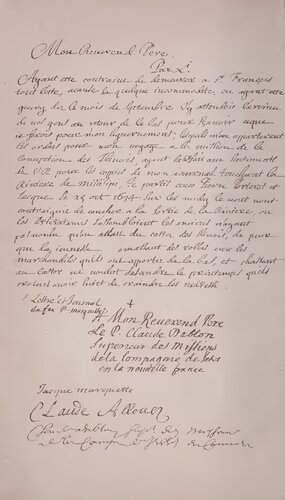 Mon Reuerend Pere
Pax Xi
Ayant este contraint de demeurer a St. François
tout l'este, acause de quelque incommodité, en ayant este
guary dez le mois de septembre J'y attendois l'arriuee
de nos gens au retour de la bas pour scauoir ce que
ie ferois pour mon hyuernement; lesquels m'apporterent
les ordres pour mon voyage a la mission de la
conception des Ilinois, ayant satisfait aux sentiments
de V.R. pour les copies de mon iournal touchant la
Riuiere de Missisipi, Je partis auec Pierre Porteret et
Jacque le 25 oct 1674 sur les midy le vent nous
contraignit de coucher a la sortie de la Riuiere, ou
les Pouteouatamis s'assembloient les anciens n'ayant
pas voulu qu'on allast du costez des Ilinois, de peur
que la ieunesse amassant des robbes auec les
marchandises qu'ils ont apportez de la bas, et chassant
au Castor ne voulut descendre le printemps qu'ils
croient auoir suiet de craindre les nadoüessi
Lettre et Journal
du feu P. marquette
A Mon Reuerend Pere
Le P. Claude Dablon
Superieur des Missions
de la Compagnie de Jesus
en la nouvelle france
Jacque marquette
Claude Allouez
Claude Dablon